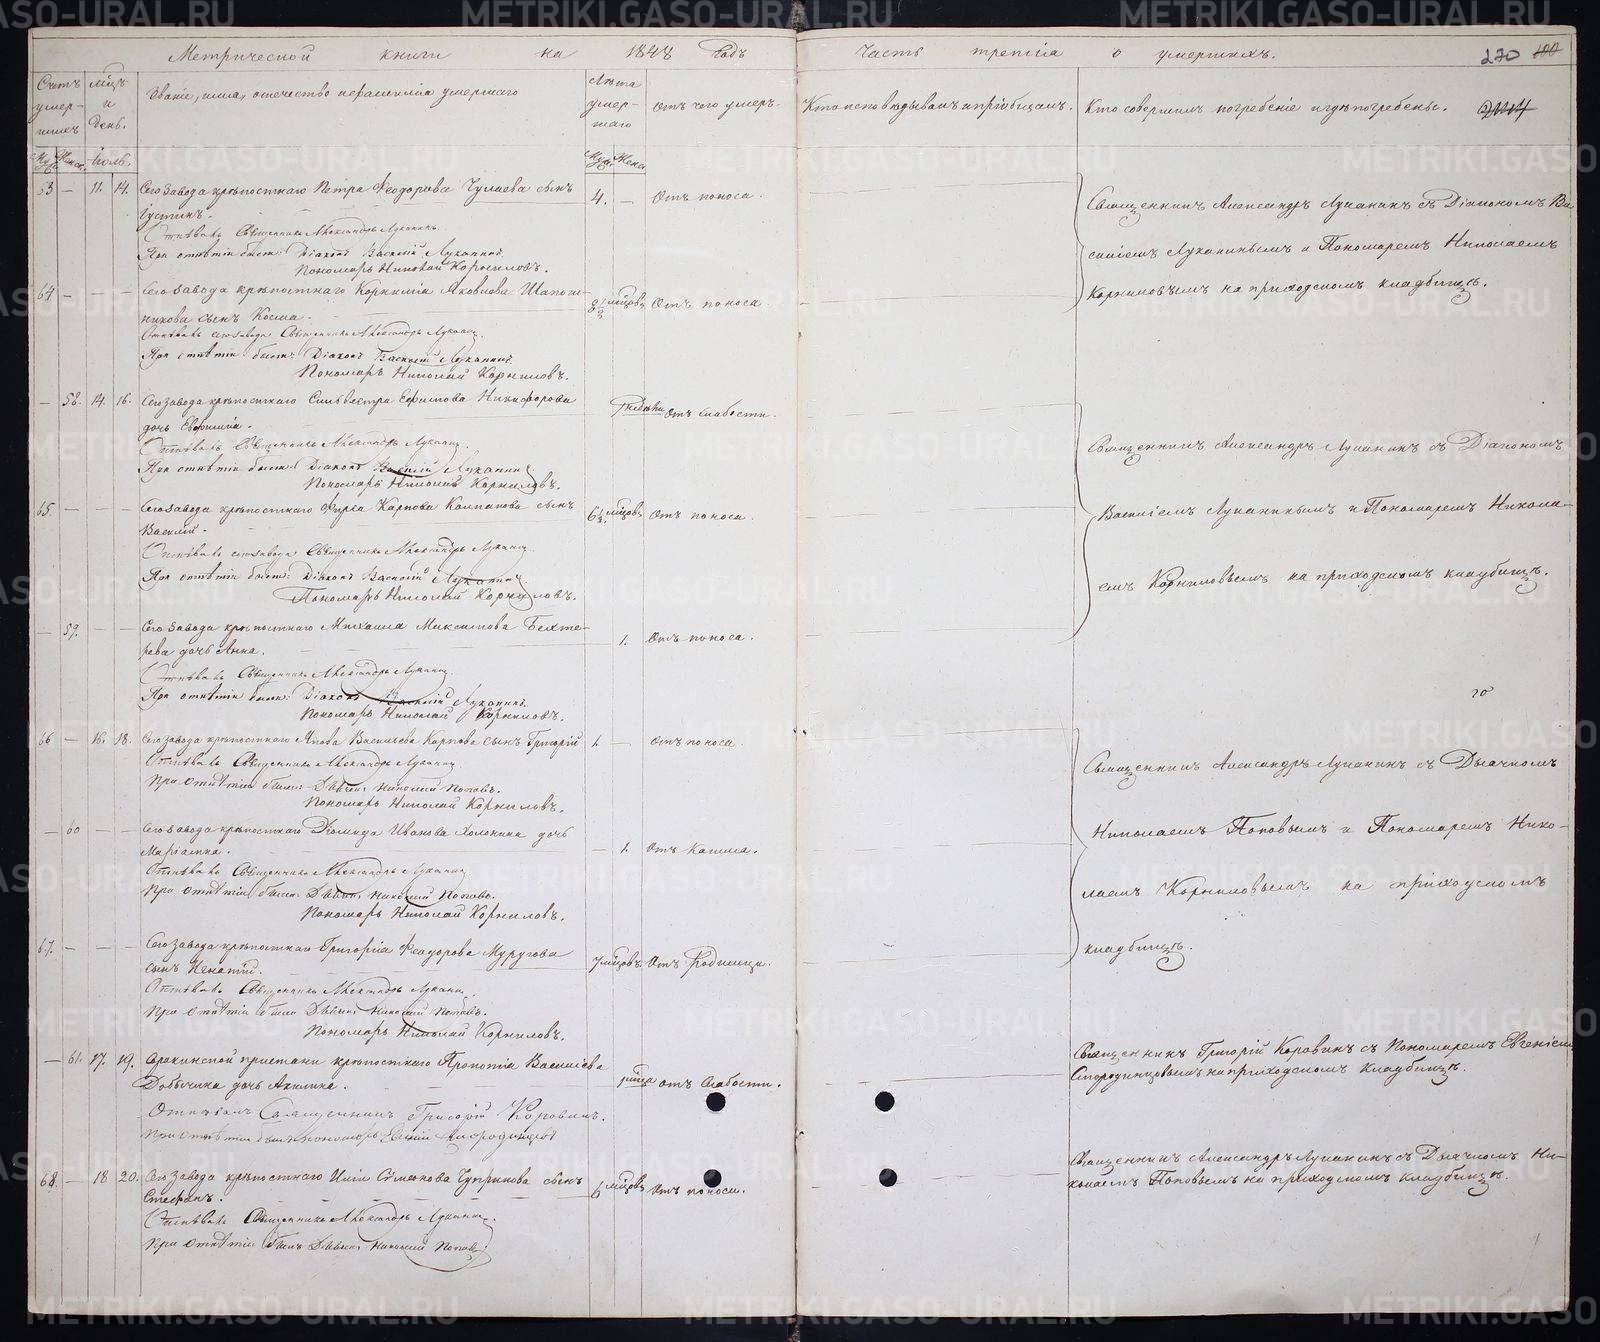 Метрической книги на 1848 годъ
Часть третiя о умершихъ.
270 100
Счетъ умер-шихъ
Мцъ и день.
Званiе, имя, отечество и фамилiя умершаго
Лѣта умер-шаго
Отъ чего умеръ.
Кто исповѣдывалъ и прiобщалъ.
Кто совершилъ погребенiе и гдѣ погребены.
Муж. Женск. Iюль. Муж. Женс.
63 — 11. 14. Сего завода крѣпостнаго Петра Феодорова сынъ 4. — Отъ поноса.
Iустинъ.
Отпѣвалъ Священникъ Александръ Луканинъ.
При отпѣтiи были: Дiаконъ Василiй Луканинъ.
Пономарь Николай Корниловъ.
Священникъ Александръ Луканинъ съ Дiакономъ Ва-
силiемъ Луканинымъ и Пономаремъ Николаемъ
Корниловымъ на приходскомъ кладбищѣ.
64 — — — Сего завода крѣпостнаго Корнилiя Яковлева Шапош-
никова сынъ Косма. мѣцовъ Отъ поноса.
Отпѣвалъ сего завода Священникъ Александръ Луканинъ
При отпѣтiи были: Дiаконъ Василiй Луканинъ.
Пономарь Николай Корниловъ.
— 58. 14. 16. Сего завода крѣпостнаго Сильвестра Ефимова Никифорова
дочь Евфимiя. Отъ слабости.
Отпѣвалъ Священникъ Александръ Луканинъ.
При отпѣтiи были: Дiаконъ Василiй Луканинъ.
Пономарь Николай Корниловъ.
Священникъ Александръ Луканинъ съ Дiакономъ
Василiемъ Луканинымъ и Пономаремъ Никола-
емъ Корниловымъ на приходскомъ кладбищѣ.
65. — — — Сего завода крѣпостнаго Фирса Карпова сынъ
Василiй. мѣцовъ Отъ поноса.
Отпѣвалъ сего завода Священникъ Александръ Луканинъ.
При отпѣтiи были: Дiаконъ Василiй Луканинъ
Пономарь Николай Корниловъ.
— 59. — — Сего завода крѣпостнаго Михаила Максимова Бехте-
рева дочь Анна. 1. Отъ поноса.
Отпѣвалъ Священникъ Александръ Луканинъ.
При отпѣтiи были: Дiаконъ Василiй Луканинъ.
Пономарь Николай Корниловъ.
66 — 16. 18. Сего завода крѣпостнаго Якова Васильева Карпова сынъ Григорiй 1. — Отъ поноса.
Отпѣвалъ Священникъ Александръ Луканинъ.
При отпѣтiи были Дьячекъ Николай Поповъ.
Пономарь Николай Корниловъ.
Священникъ Александръ Луканинъ съ Дьячкомъ
Николаемъ Поповымъ и Пономаремъ Нико-
лаемъ Корниловымъ на приходскомъ
кладбищѣ.
— 60 — — Сего завода крѣпостнаго Иванова дочь
Марiамна. — 1. Отъ кашля.
Отпѣвалъ Священникъ Александръ Луканинъ
При отпѣтiи были Дьячекъ Николай Поповъ.
Пономарь Николай Корниловъ.
67. — — — Сего завода крѣпостнаго Григорiя Феодорова
сынъ Игнатiй. 7 мѣцовъ Отъ родимца.
Отпѣвалъ Священникъ Александръ Луканинъ
При отпѣтiи были Дьячекъ Николай Поповъ.
Пономарь Николай Корниловъ.
— 61. 17. 19. пристани крѣпостнаго Прокопiя Василiева
дочь Акилина. отъ слабости.
Отпѣвалъ Священникъ Григорiй Коровинъ.
При отпѣтiи былъ пономарь Евгенiй
Священникъ Григорiй Коровинъ съ Пономаремъ Евгенiемъ
на приходскомъ кладбищѣ.
68. — 18 20. Сего завода крѣпостнаго Ильи Симеонова сынъ
Стефанъ. 6 мѣцовъ Отъ поноса.
Отпѣвалъ Священникъ Александръ Луканинъ.
При отпѣтiи былъ Дьячекъ Николай Поповъ.
Священникъ Александръ Луканинъ съ Дьячкомъ Ни-
колаемъ Поповымъ на приходскомъ кладбищѣ.
METRIKI.GASO-URAL.RU